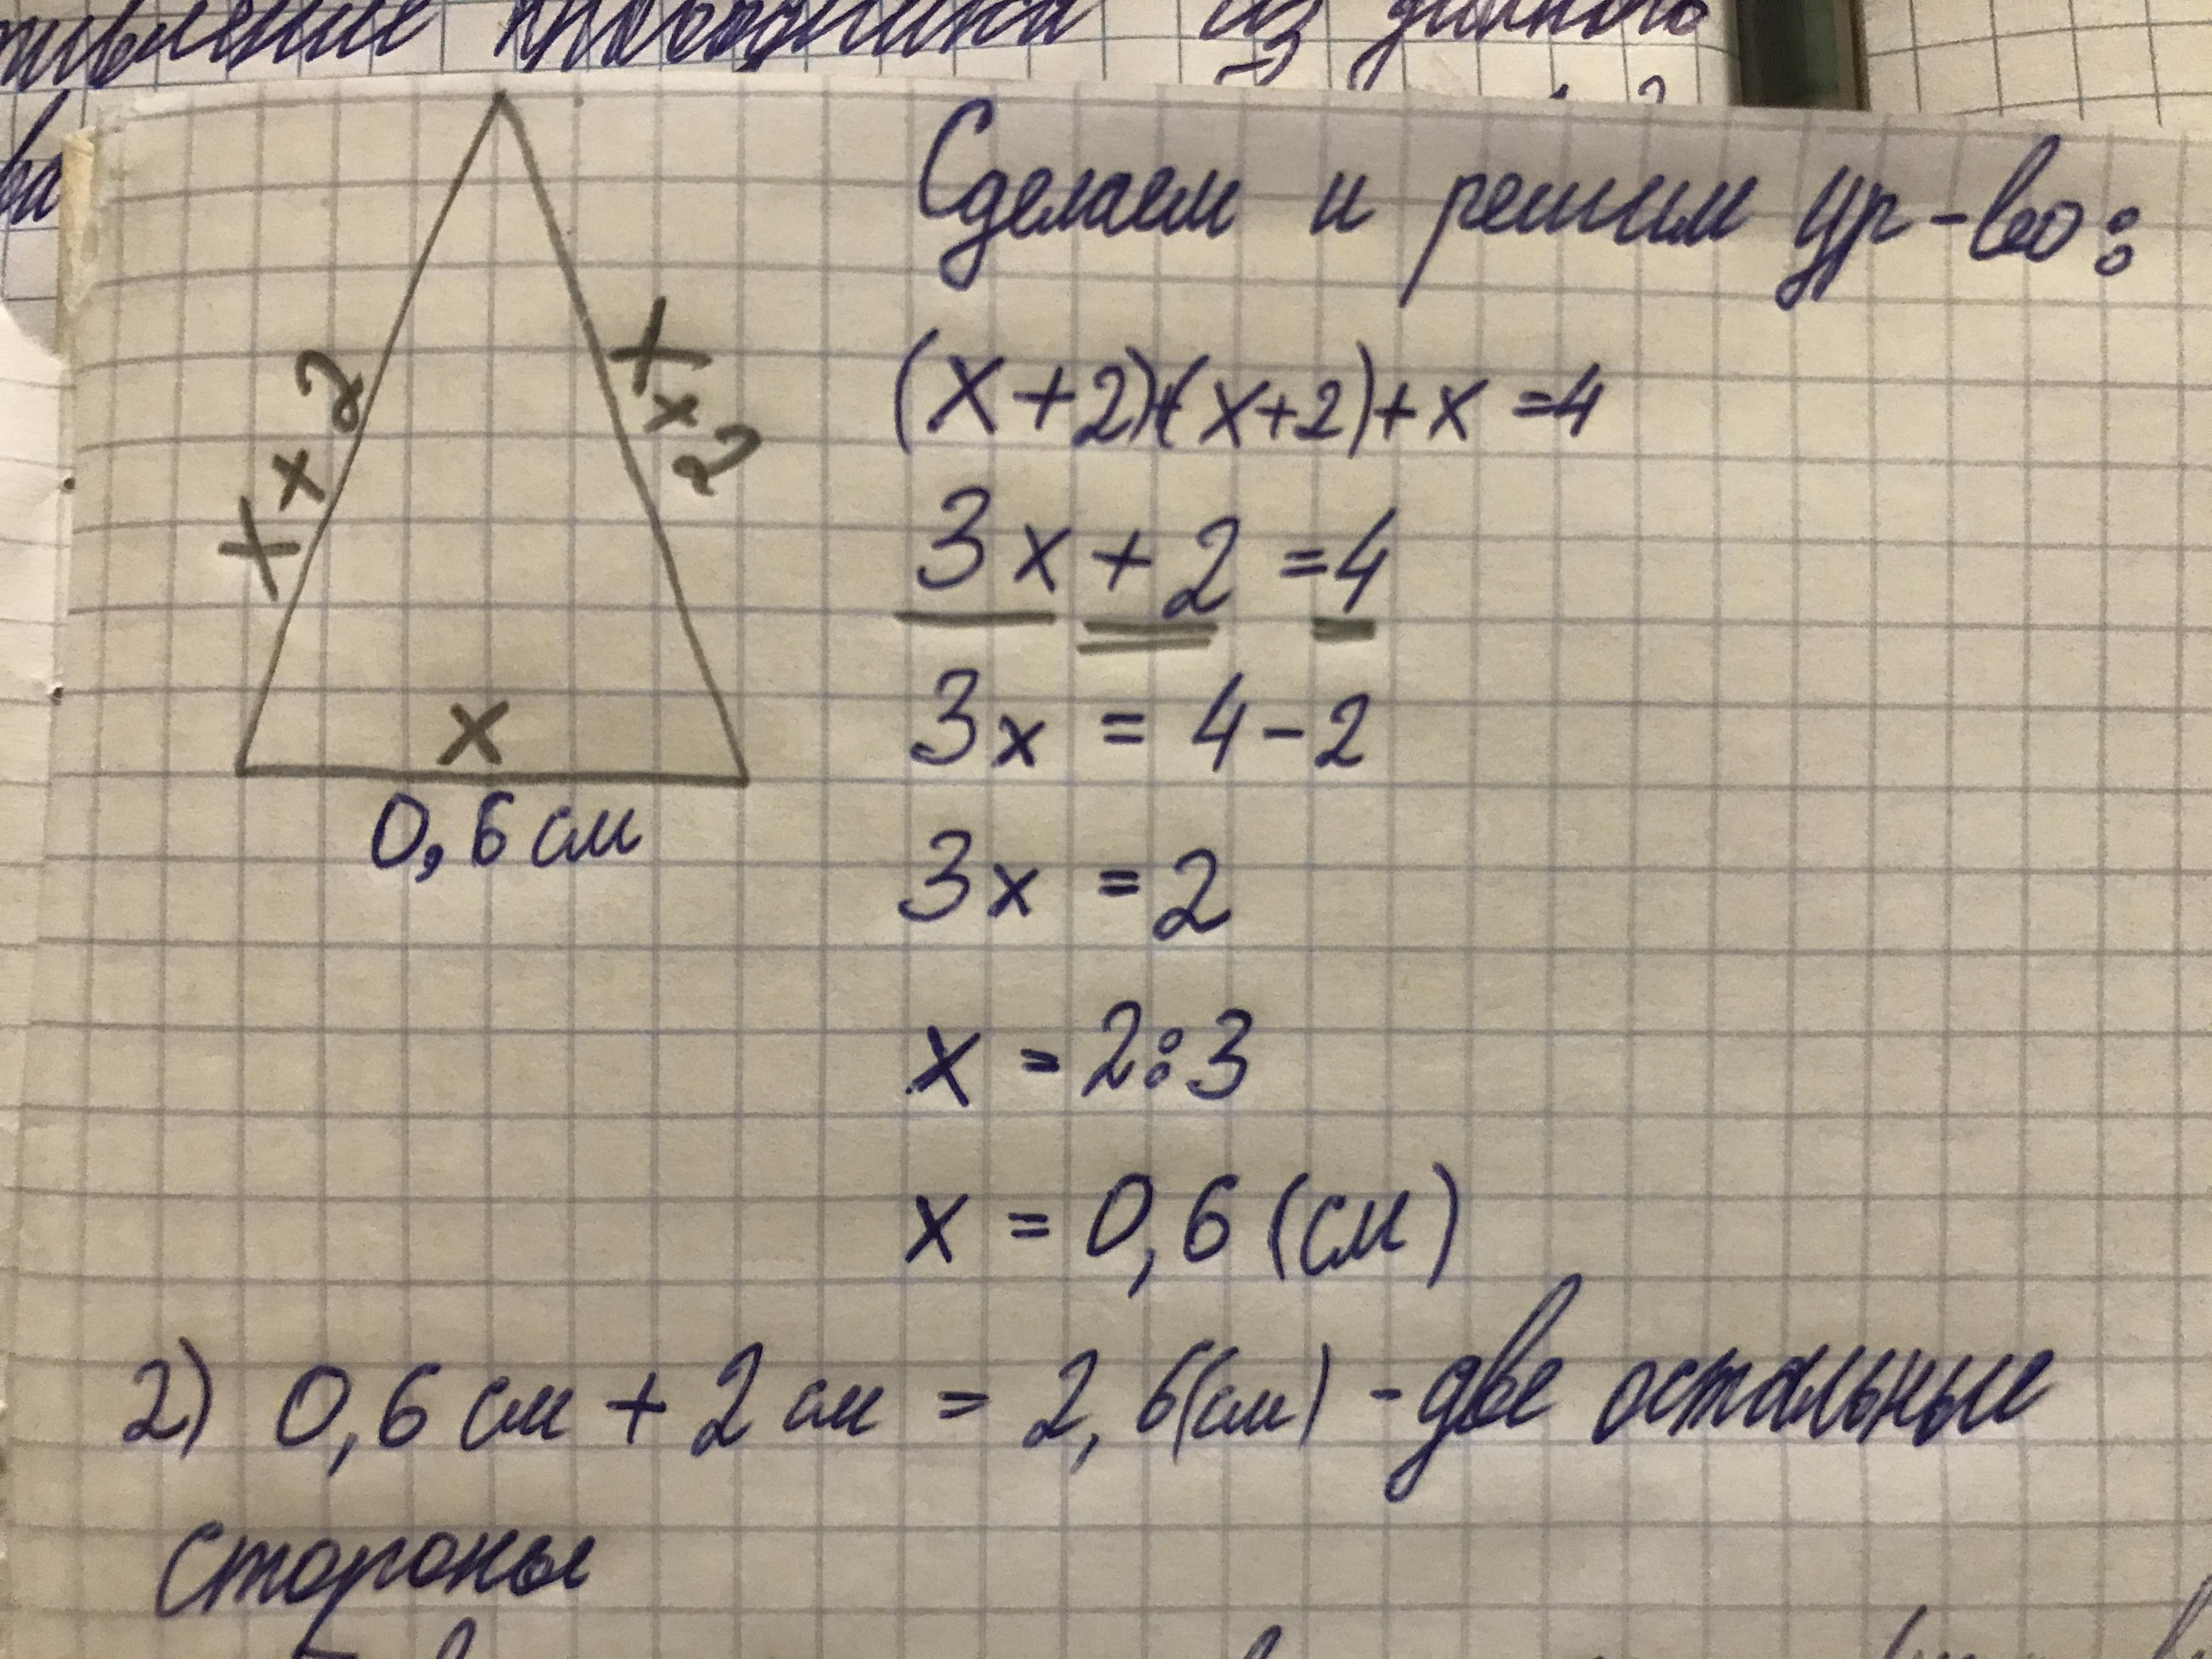 из данного
x + 2
x + 2
x
0,6 см
Сделаем и решим ур-во:
(x+2)+(x+2)+x=4
3x+2=4
3x = 4-2
3x = 2
x = 2:3
x = 0,6 (см)
2) 0,6 см + 2 см = 2,6(см) - две остальные
стороны